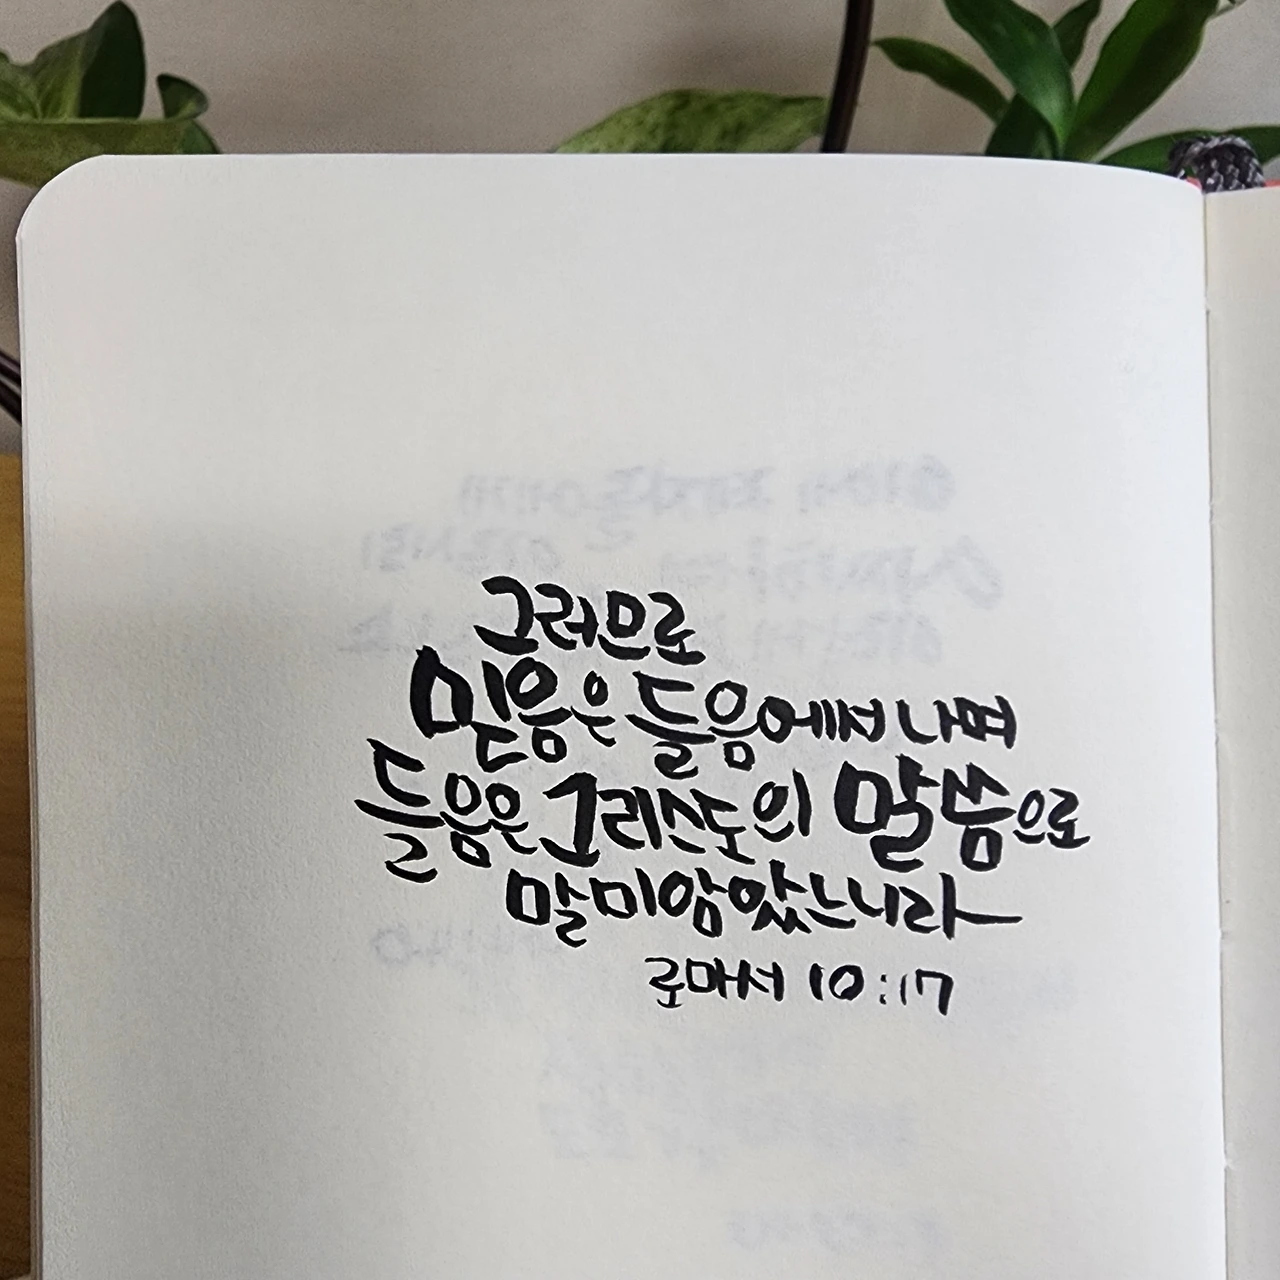 그러므로
믿음은 들음에서 나며
들음은 그리스도의 말씀으로
말미암았느니라
로마서 10:17